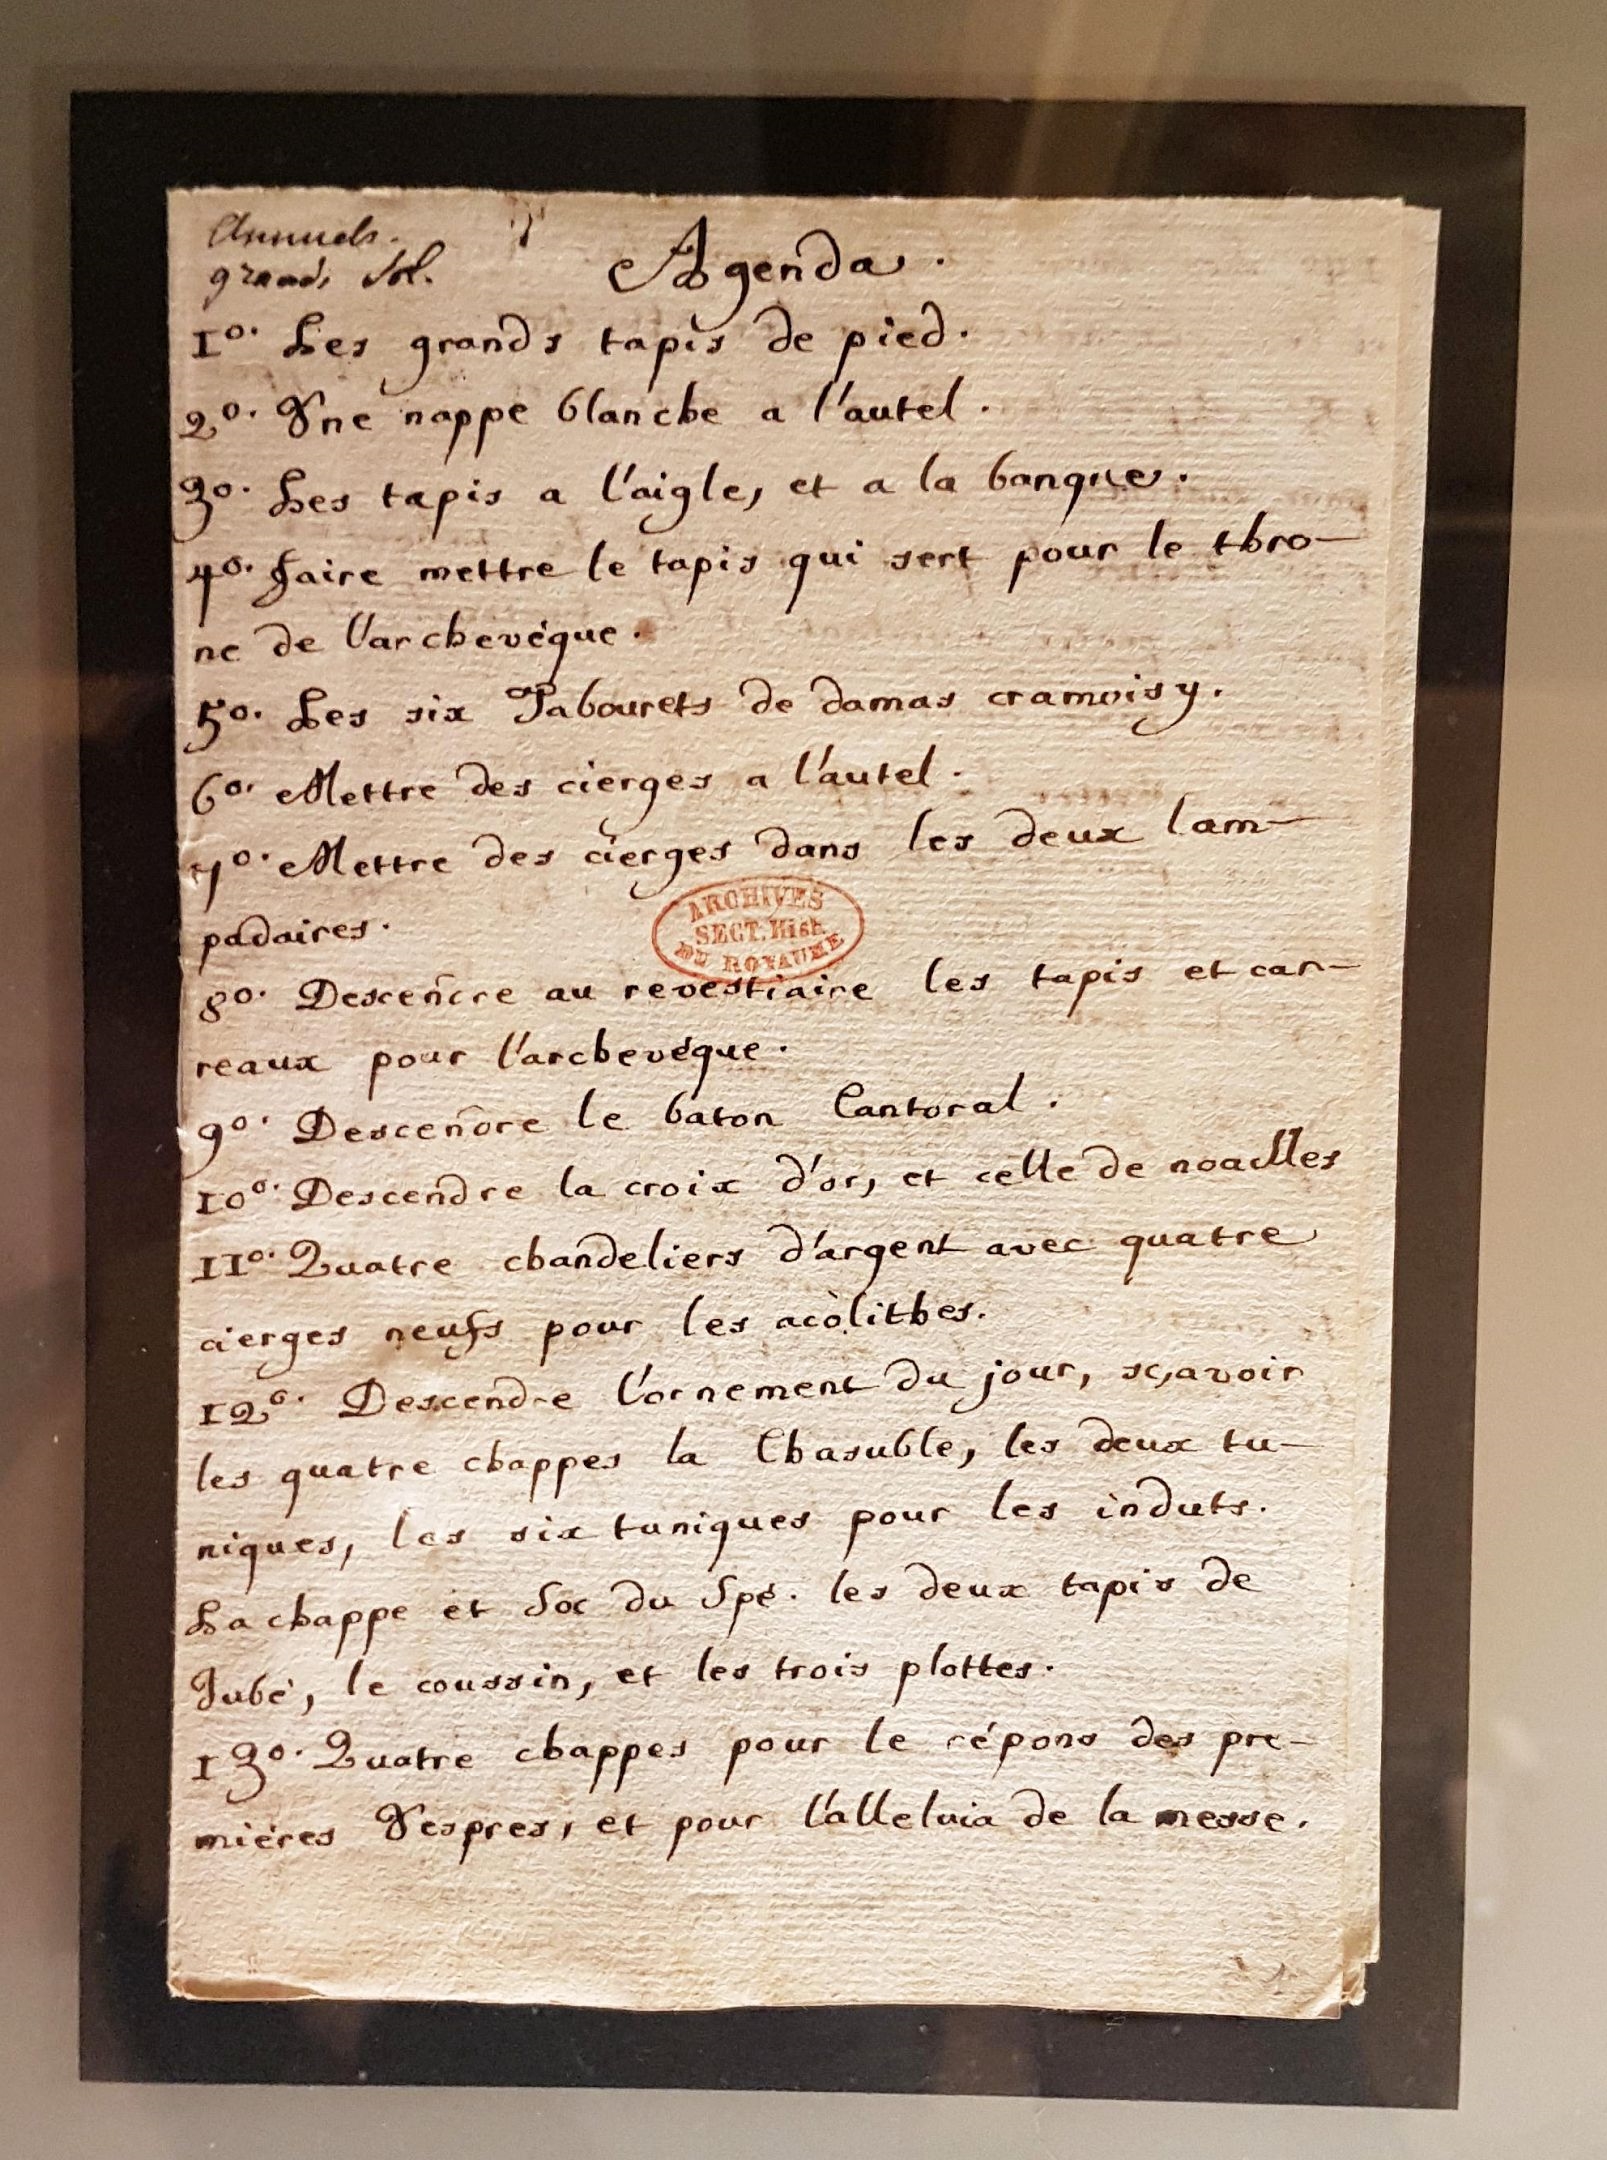 Annuels.
grands Sol.
Agenda.
1º. Les grands tapis de pied.
2º. Vne nappe blanche a l'autel.
3º. Les tapis a l'aigle, et a la banque.
4º. faire mettre le tapis qui sert pour le thro-
ne de l'archevéque.
5º. Les six Tabourets de damas cramoisy.
6º. Mettre des cierges a l'autel.
7º. Mettre des cierges dans les deux lam-
padaires.
ARCHIVES
SECT. Hist.
DU ROYAUME
8º. Descendre au revestiaire les tapis et car-
reaux pour l'archevéque.
9º. Descendre le baton Cantoral.
10º. Descendre la croix d'or, et celle de noailles
11º. Quatre chandeliers d'argent avec quatre
cierges neufs pour les acòlithes.
12º. Descendre l'ornement du jour, sçavoir
les quatre chappes la Chasuble, les deux tu-
niques, les six tuniques pour les induts.
La chappe et Soc du Spé. les deux tapis de
Jubé, le coussin, et les trois plottes.
13º. Quatre chappes pour le répons des pre-
miéres Vespres, et pour l'alleluia de la messe.